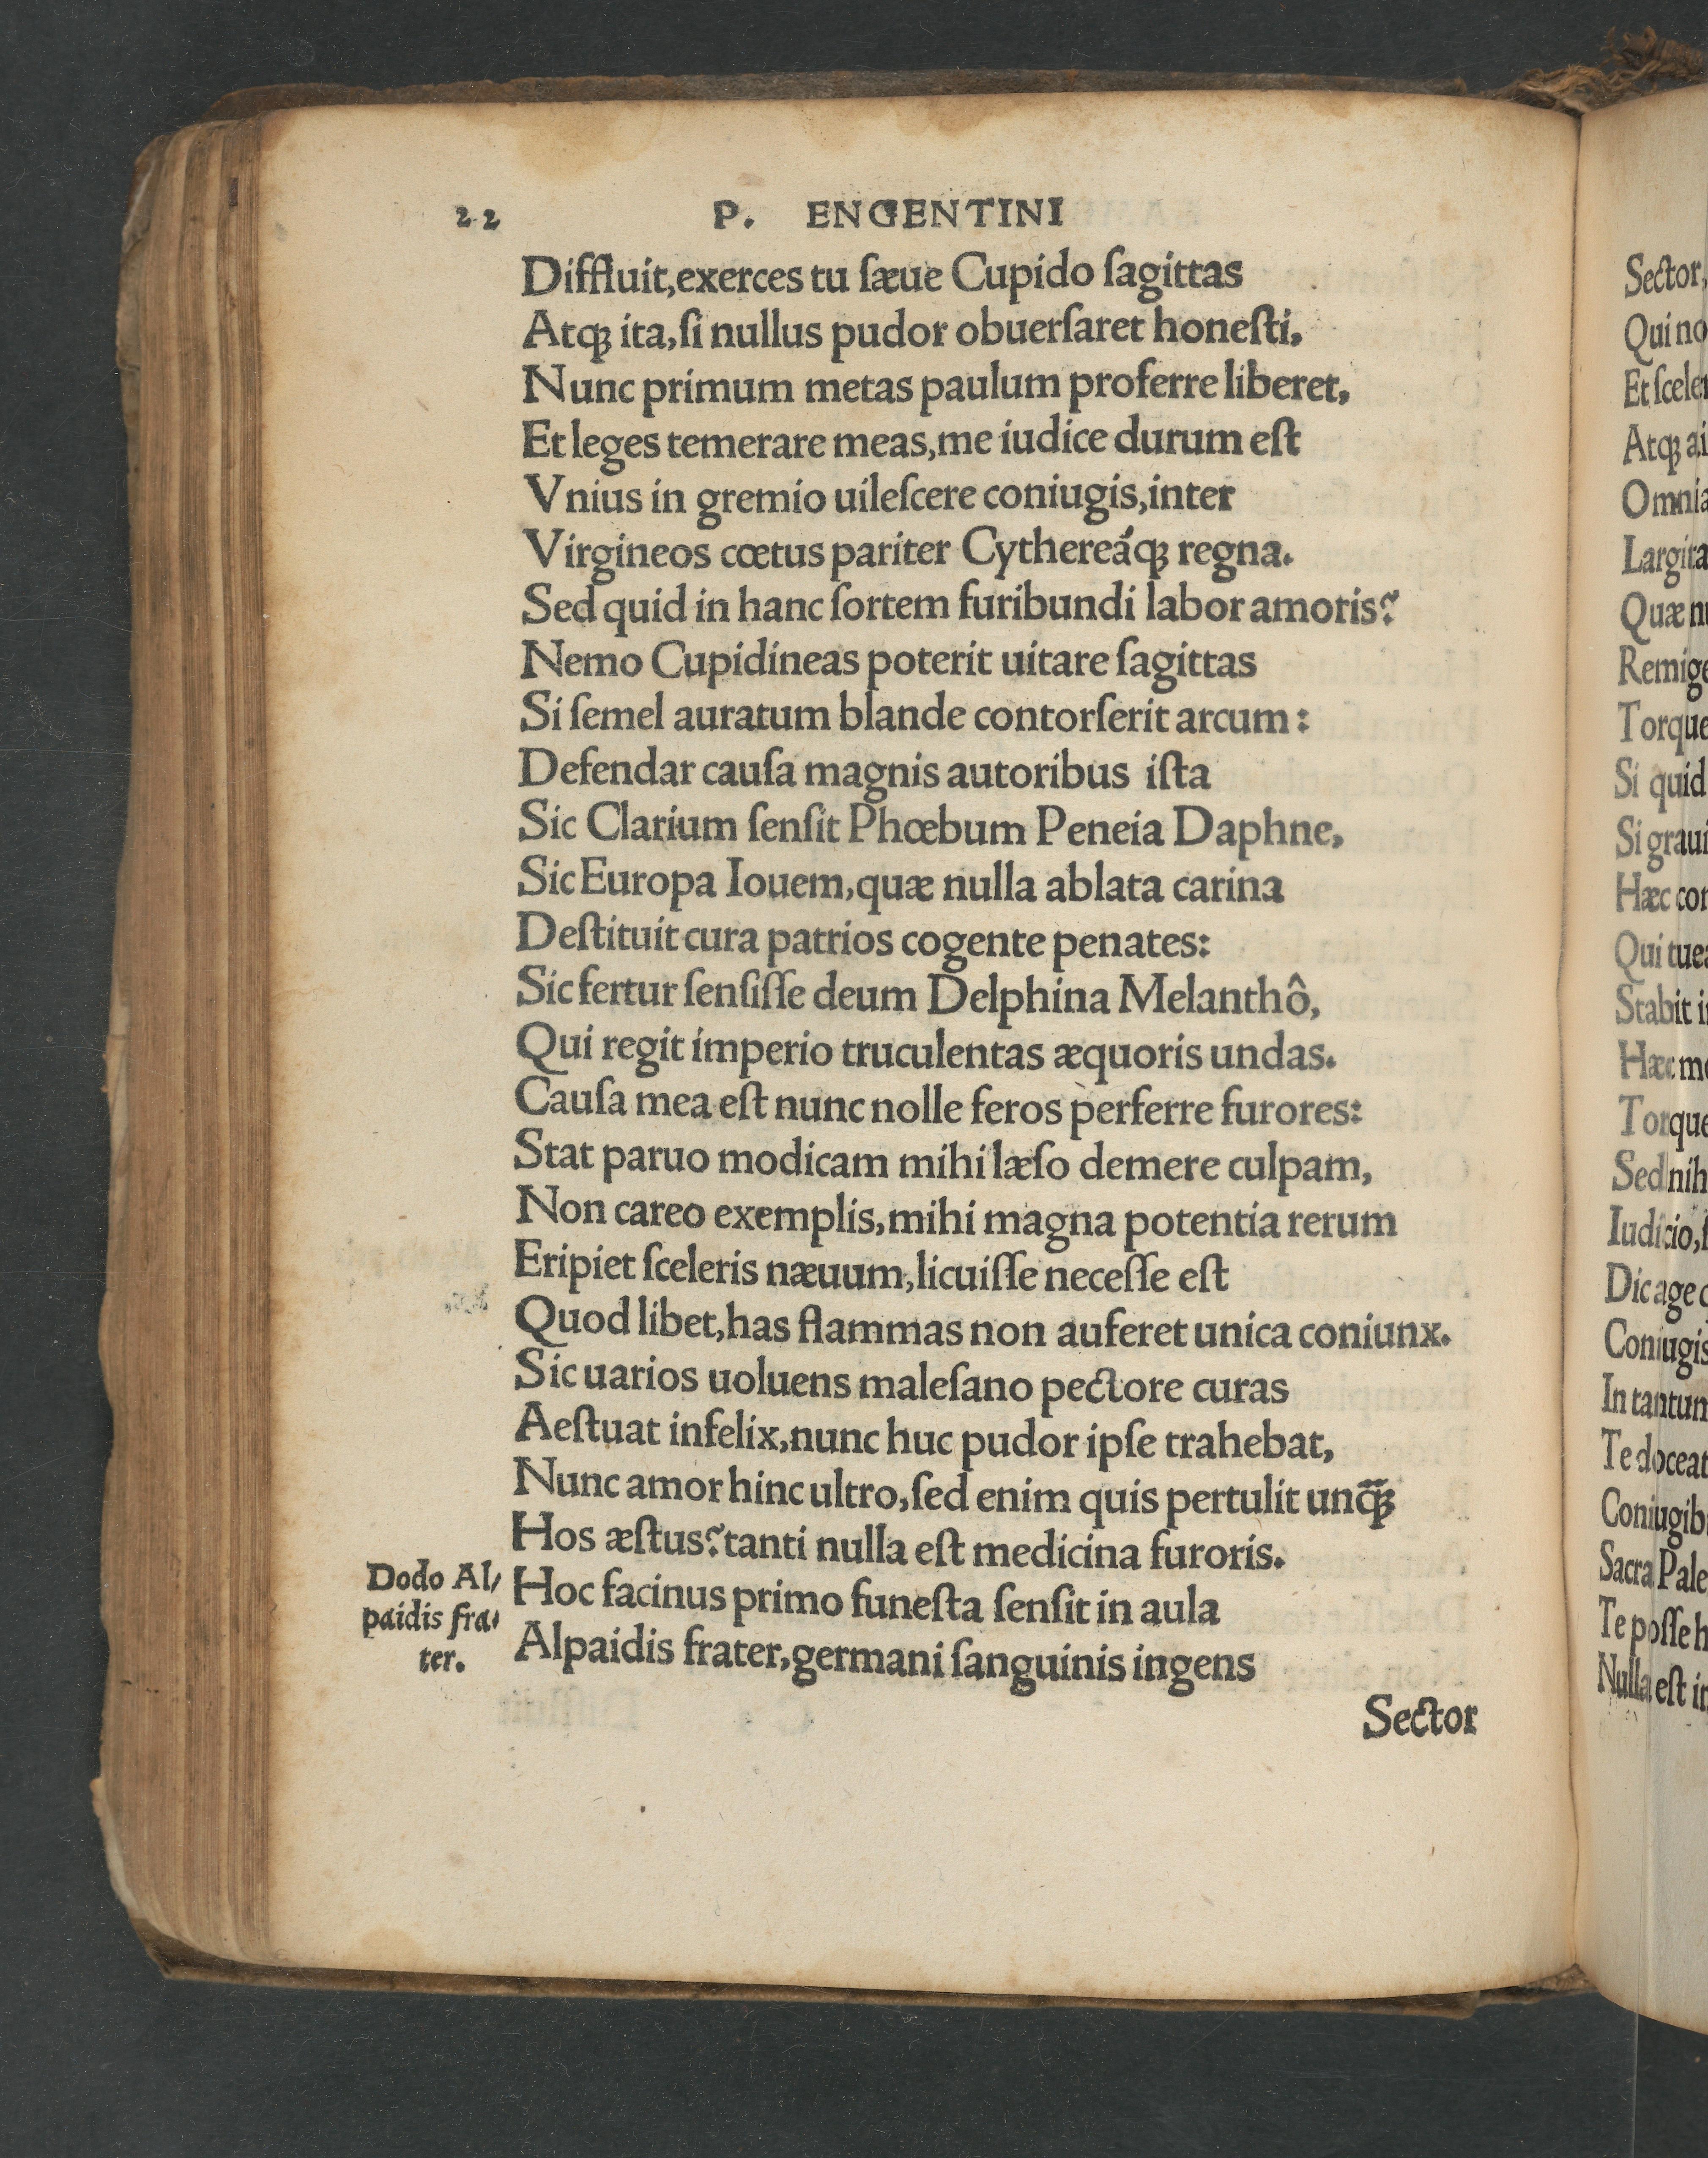 22 P. ENGENTINI
Diffluit,exerces tu ſæue Cupido ſagittas
Atqꝫ ita,ſi nullus pudor obuerſaret honeſti,
Nunc primum metas paulum proferre liberet,
Et leges temerare meas,me iudice durum eſt
Vnius in gremio uileſcere coniugis,inter
Virgineos cœtus pariter Cythereáqꝫ regna.
Sed quid in hanc ſortem furibundi labor amoris?
Nemo Cupidineas poterit uitare ſagittas
Si ſemel auratum blande contorſerit arcum:
Defendar cauſa magnis autoribus iſta
Sic Clarium ſenſit Phœbum Peneia Daphne,
Sic Europa Iouem,quæ nulla ablata carina
Deſtituit cura patrios cogente penates:
Sic fertur ſenſiſſe deum Delphina Melanthô,
Qui regit imperio truculentas æquoris undas.
Cauſa mea eſt nunc nolle feros perferre furores:
Stat paruo modicam mihi læſo demere culpam,
Non careo exemplis,mihi magna potentia rerum
Eripiet ſceleris næuum,licuiſſe neceſſe eſt
Quod libet,has flammas non auferet unica coniunx.
Sic uarios uoluens maleſano pectore curas
Aeſtuat infelix,nunc huc pudor ipſe trahebat,
Nunc amor hinc ultro,ſed enim quis pertulit unq̃ꝫ
Hos æſtus?tanti nulla eſt medicina furoris.
Hoc facinus primo funeſta ſenſit in aula
Alpaidis frater,germani ſanguinis ingens
Sector
Dodo Al/
paidis fra/
ter.
Sector,
Qui no
Et ſceler
Atqꝫ ai
Omnia
Largita
Quæ nu
Remige
Torque
Si quid
Si graui
Hæc con
Qui tuea
Stabit i
Hæc me
Torque
Sed nih
Iudicio,
Dic age
Coniugis
In tantum
Te doceat
Coniugib
Sacra Pale
Te poſſe h
Nulla eſt in